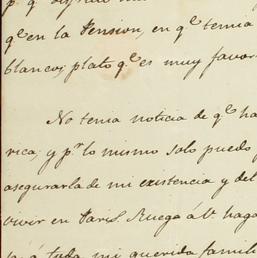 qᵉ en la Pension, en qᵉ tenia
blanco; plato qᵉ es muy favor
No tenia noticia de qᵉ ha
rica, y pʳ lo mismo solo puedo
asegurarla de mi existencia y del
vivir en Paris. Ruego á V. haga
toda mi querida famili